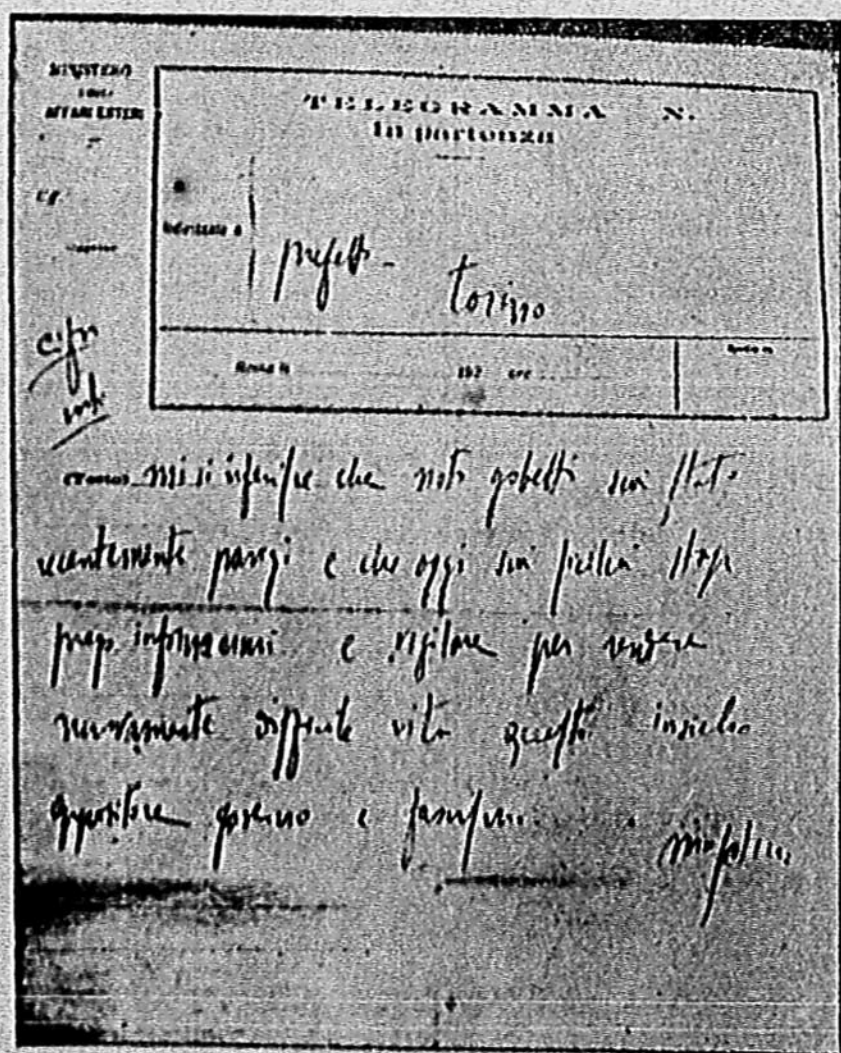 MINISTERO
AFFARI ESTERI
TELEGRAMMA N.
In partenza
Indirizzato a
prefetto - torino
Roma li 192 ore
mi si riferisce che noto gobetti sia stato
recentemente parigi e che oggi sia sicilia stop
prego informarmi e vigilare per rendere
nuovamente difficile vita questo insulso
oppositore governo e fascismo.
mussolini